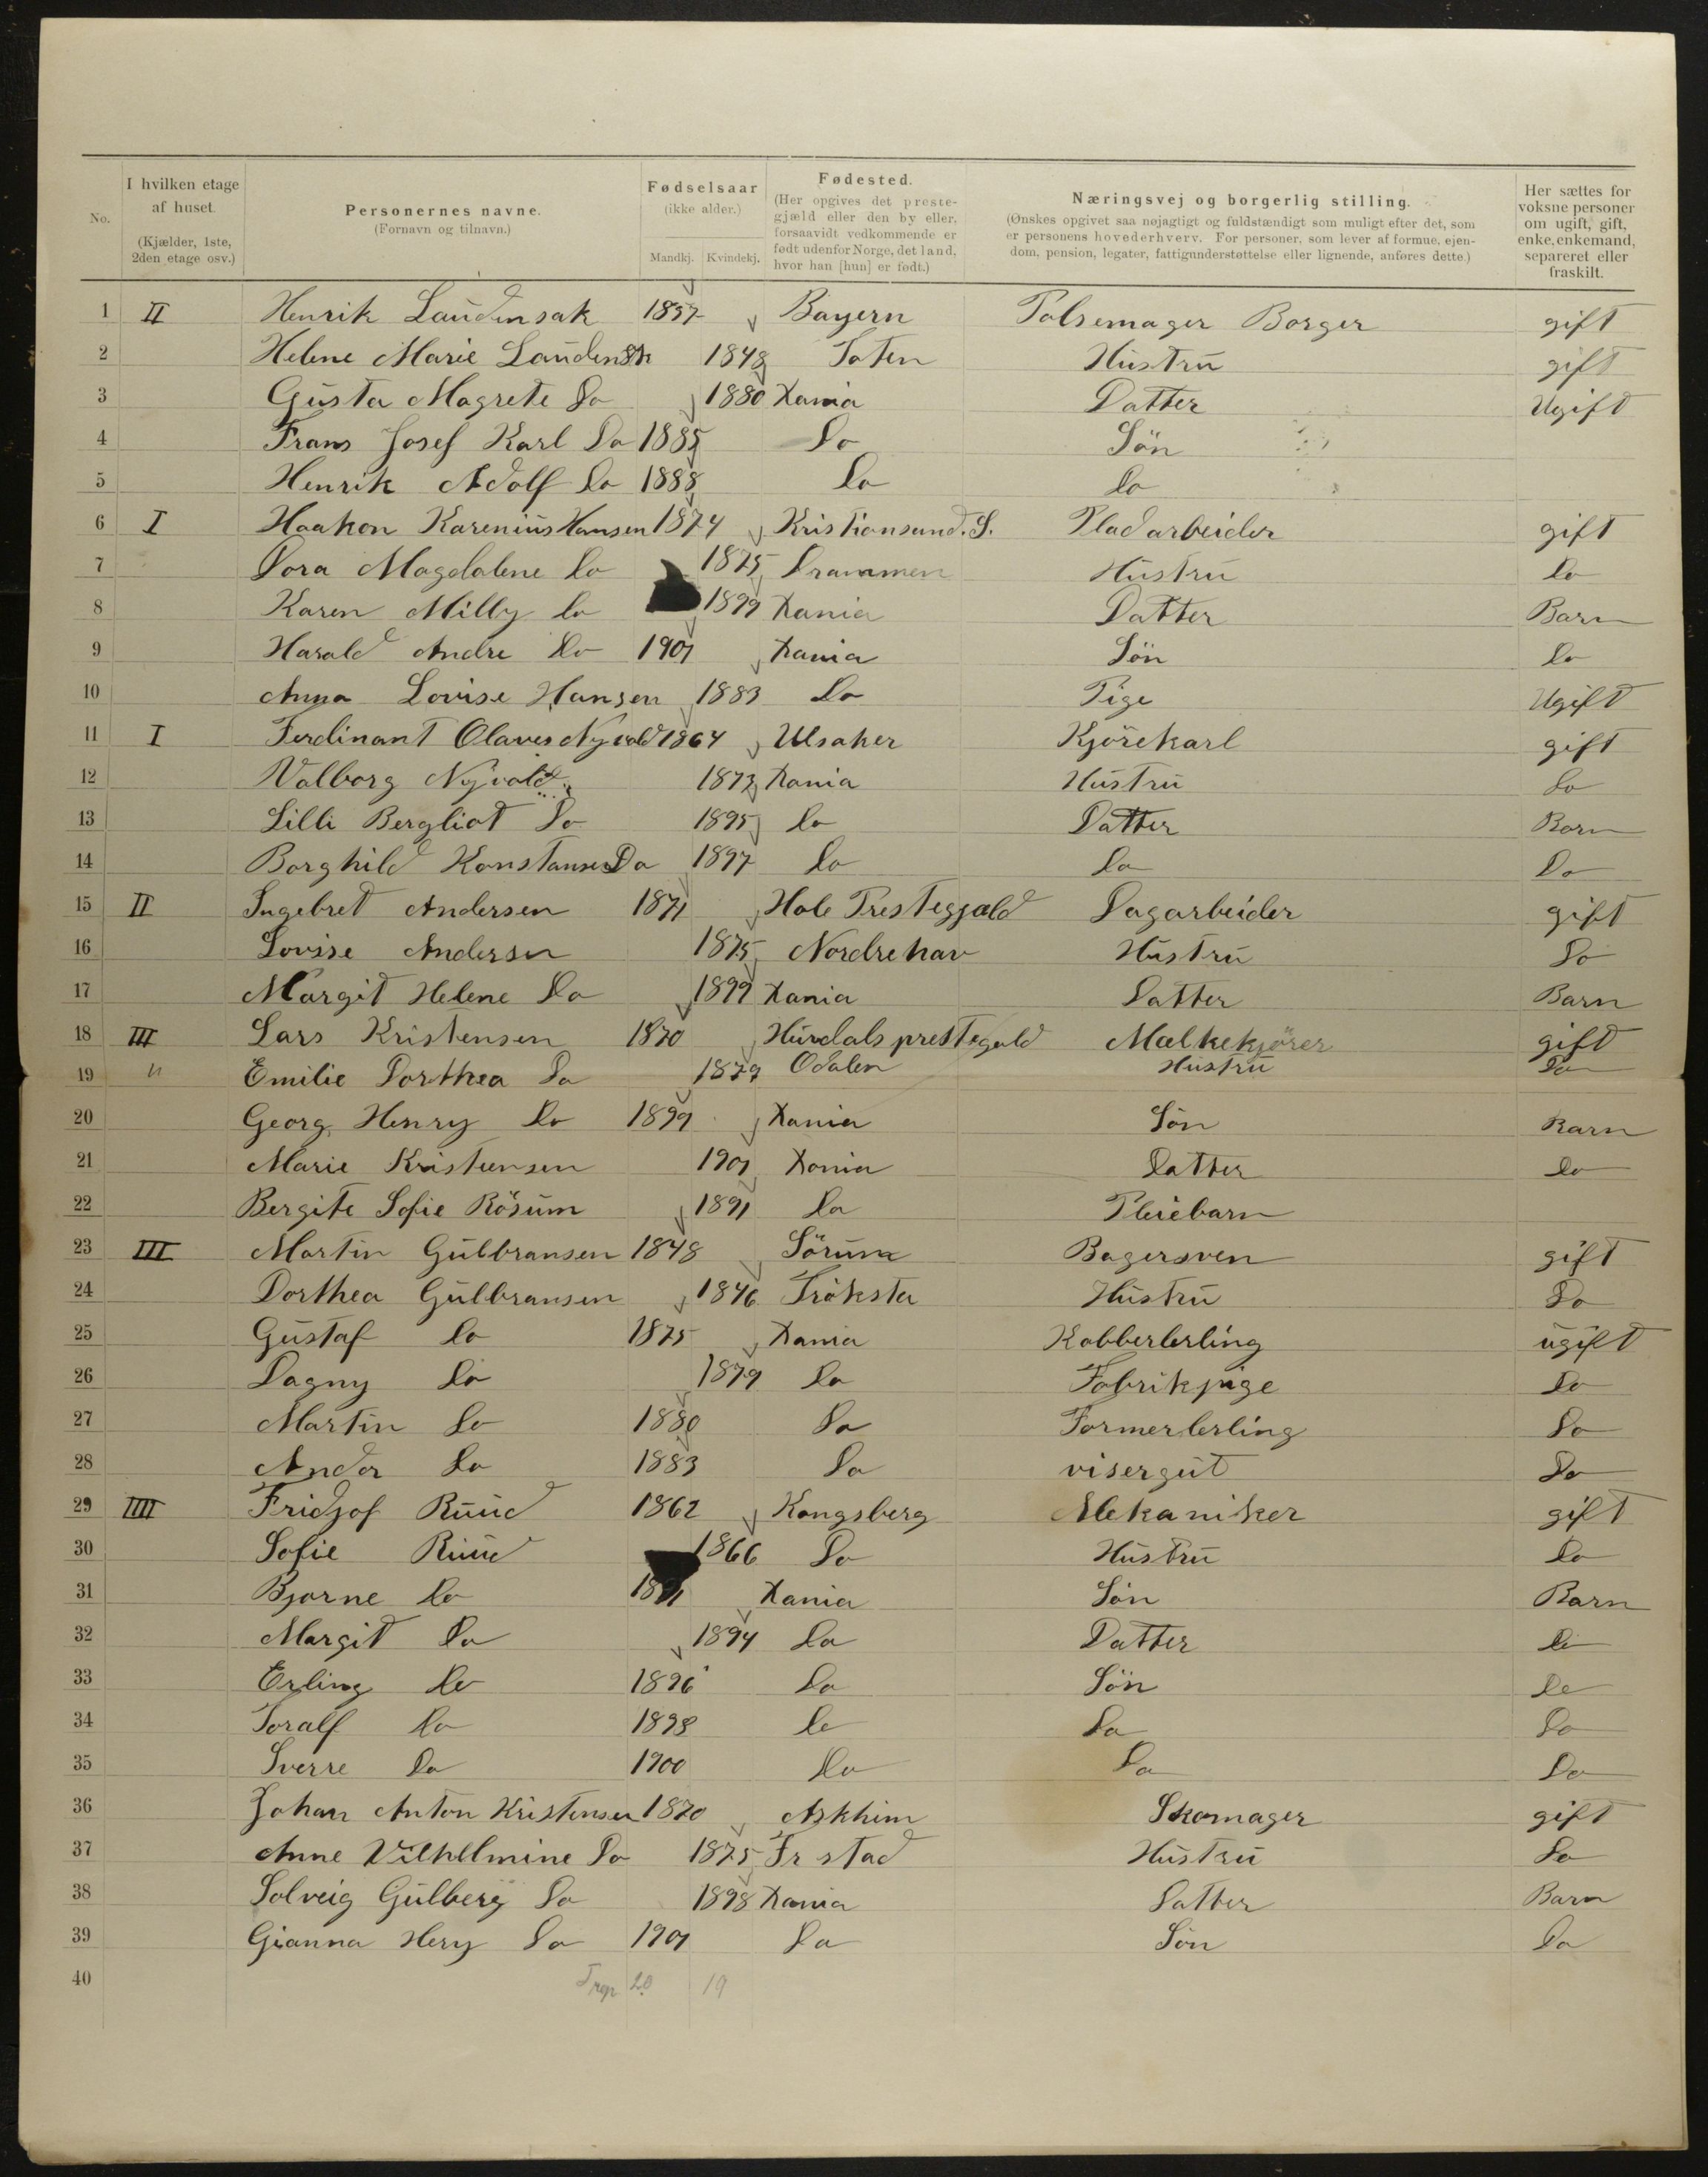 No.
I hvilken etage af huset. (Kjælder, 1ste, 2den etage osv.)
Personernes navne. (Fornavn og tilnavn.)
Fødselsaar (ikke alder.) Mandkj. Kvindekj.
Fødested. (Her opgives det prestegjæld eller den by eller, forsaavidt vedkommende er født udenfor Norge, det land, hvor han [hun] er født.)
Næringsvej og borgerlig stilling. (Ønskes opgivet saa nøjagtigt og fuldstændigt som muligt efter det, som er personens hovederhverv. For personer, som lever af formue, ejendom, pension, legater, fattigunderstøttelse eller lignende, anføres dette.)
Her sættes for voksne personer om ugift, gift, enke, enkemand, separeret eller fraskilt.
1 II Henrik Laudensak 1857 Bayern Polsemager Borger gift
2 Helene Marie Laudensk 1848 Toten Hustru gift
3 Gusta Magrete Do 1880 Xania Datter Ugift
4 Frans Josef Karl Do 1885 Do Sön
5 Henrik Adolf Do 1888 Do Do
6 I Haakon Karenius Hansen 1874 Kristiansund. S. Pladarbeider gift
7 Dora Magdalene Do 1875 Drammen Hustru Do
8 Karen Milly Do 1899 Xania Datter Barn
9 Harald Andre Do 1901 Xania Sön Do
10 Anna Lovise Hansen 1883 Do Pige Ugift
11 I Ferdinant Olaves Nyvold 1864 Ulsaker Kjörekarl gift
12 Valborg Nyvold 1873 Xania Hustru Do
13 Lilli Bergliot Do 1895 Do Datter Barn
14 Borghild Konstanse Do 1897 Do Do Do
15 II Ingebret Andersen 1871 Hole Prestegjæld Dagarbeider gift
16 Lovise Andersen 1875 Nordrehav Hustru Do
17 Margit Helene Do 1899 Xania Datter Barn
18 III Lars Kristensen 1870 Hurdals prestegæld Mælkekjörer gift
19 " Emilie Dorthea Do 1879 Odalen Hustru Do
20 Georg Henry Do 1899 Xania Sön Barn
21 Marie Kristensen 1901 Xania Datter Do
22 Bergite Sofie Rösum 1891 Do Pleiebarn
23 III Martin Gulbransen 1848 Sörum Bagersven gift
24 Dorthea Gulbransen 1846 Tröksta Hustru Do
25 Gustaf Do 1875 Xania Kobberlerling ugift
26 Dagny Do 1879 Do Fabrikpige Do
27 Martin Do 1880 Do Formerlerling Do
28 Andor Do 1883 Do visergut Do
29 IIII Fridjof Ruud 1862 Kongsberg Mekaniker gift
30 Sofie Ruud 1866 Do Hustru Do
31 Bjarne Do 1891 Xania Sön Barn
32 Margit Do 1894 Do Datter Do
33 Erling Do 1896 Do Sön Do
34 Toralf Do 1898 Do Do Do
35 Sverre Do 1900 Do Do Do
36 Johan Anton Kristensen 1870 Askhim Skomager gift
37 Anne Vilhelmine Do 1875 Fr stad Hustru Do
38 Solveig Gulberg Do 1898 Xania Datter Barn
39 Gianna Hery Do 1901 Do Sön Do
40 20 19